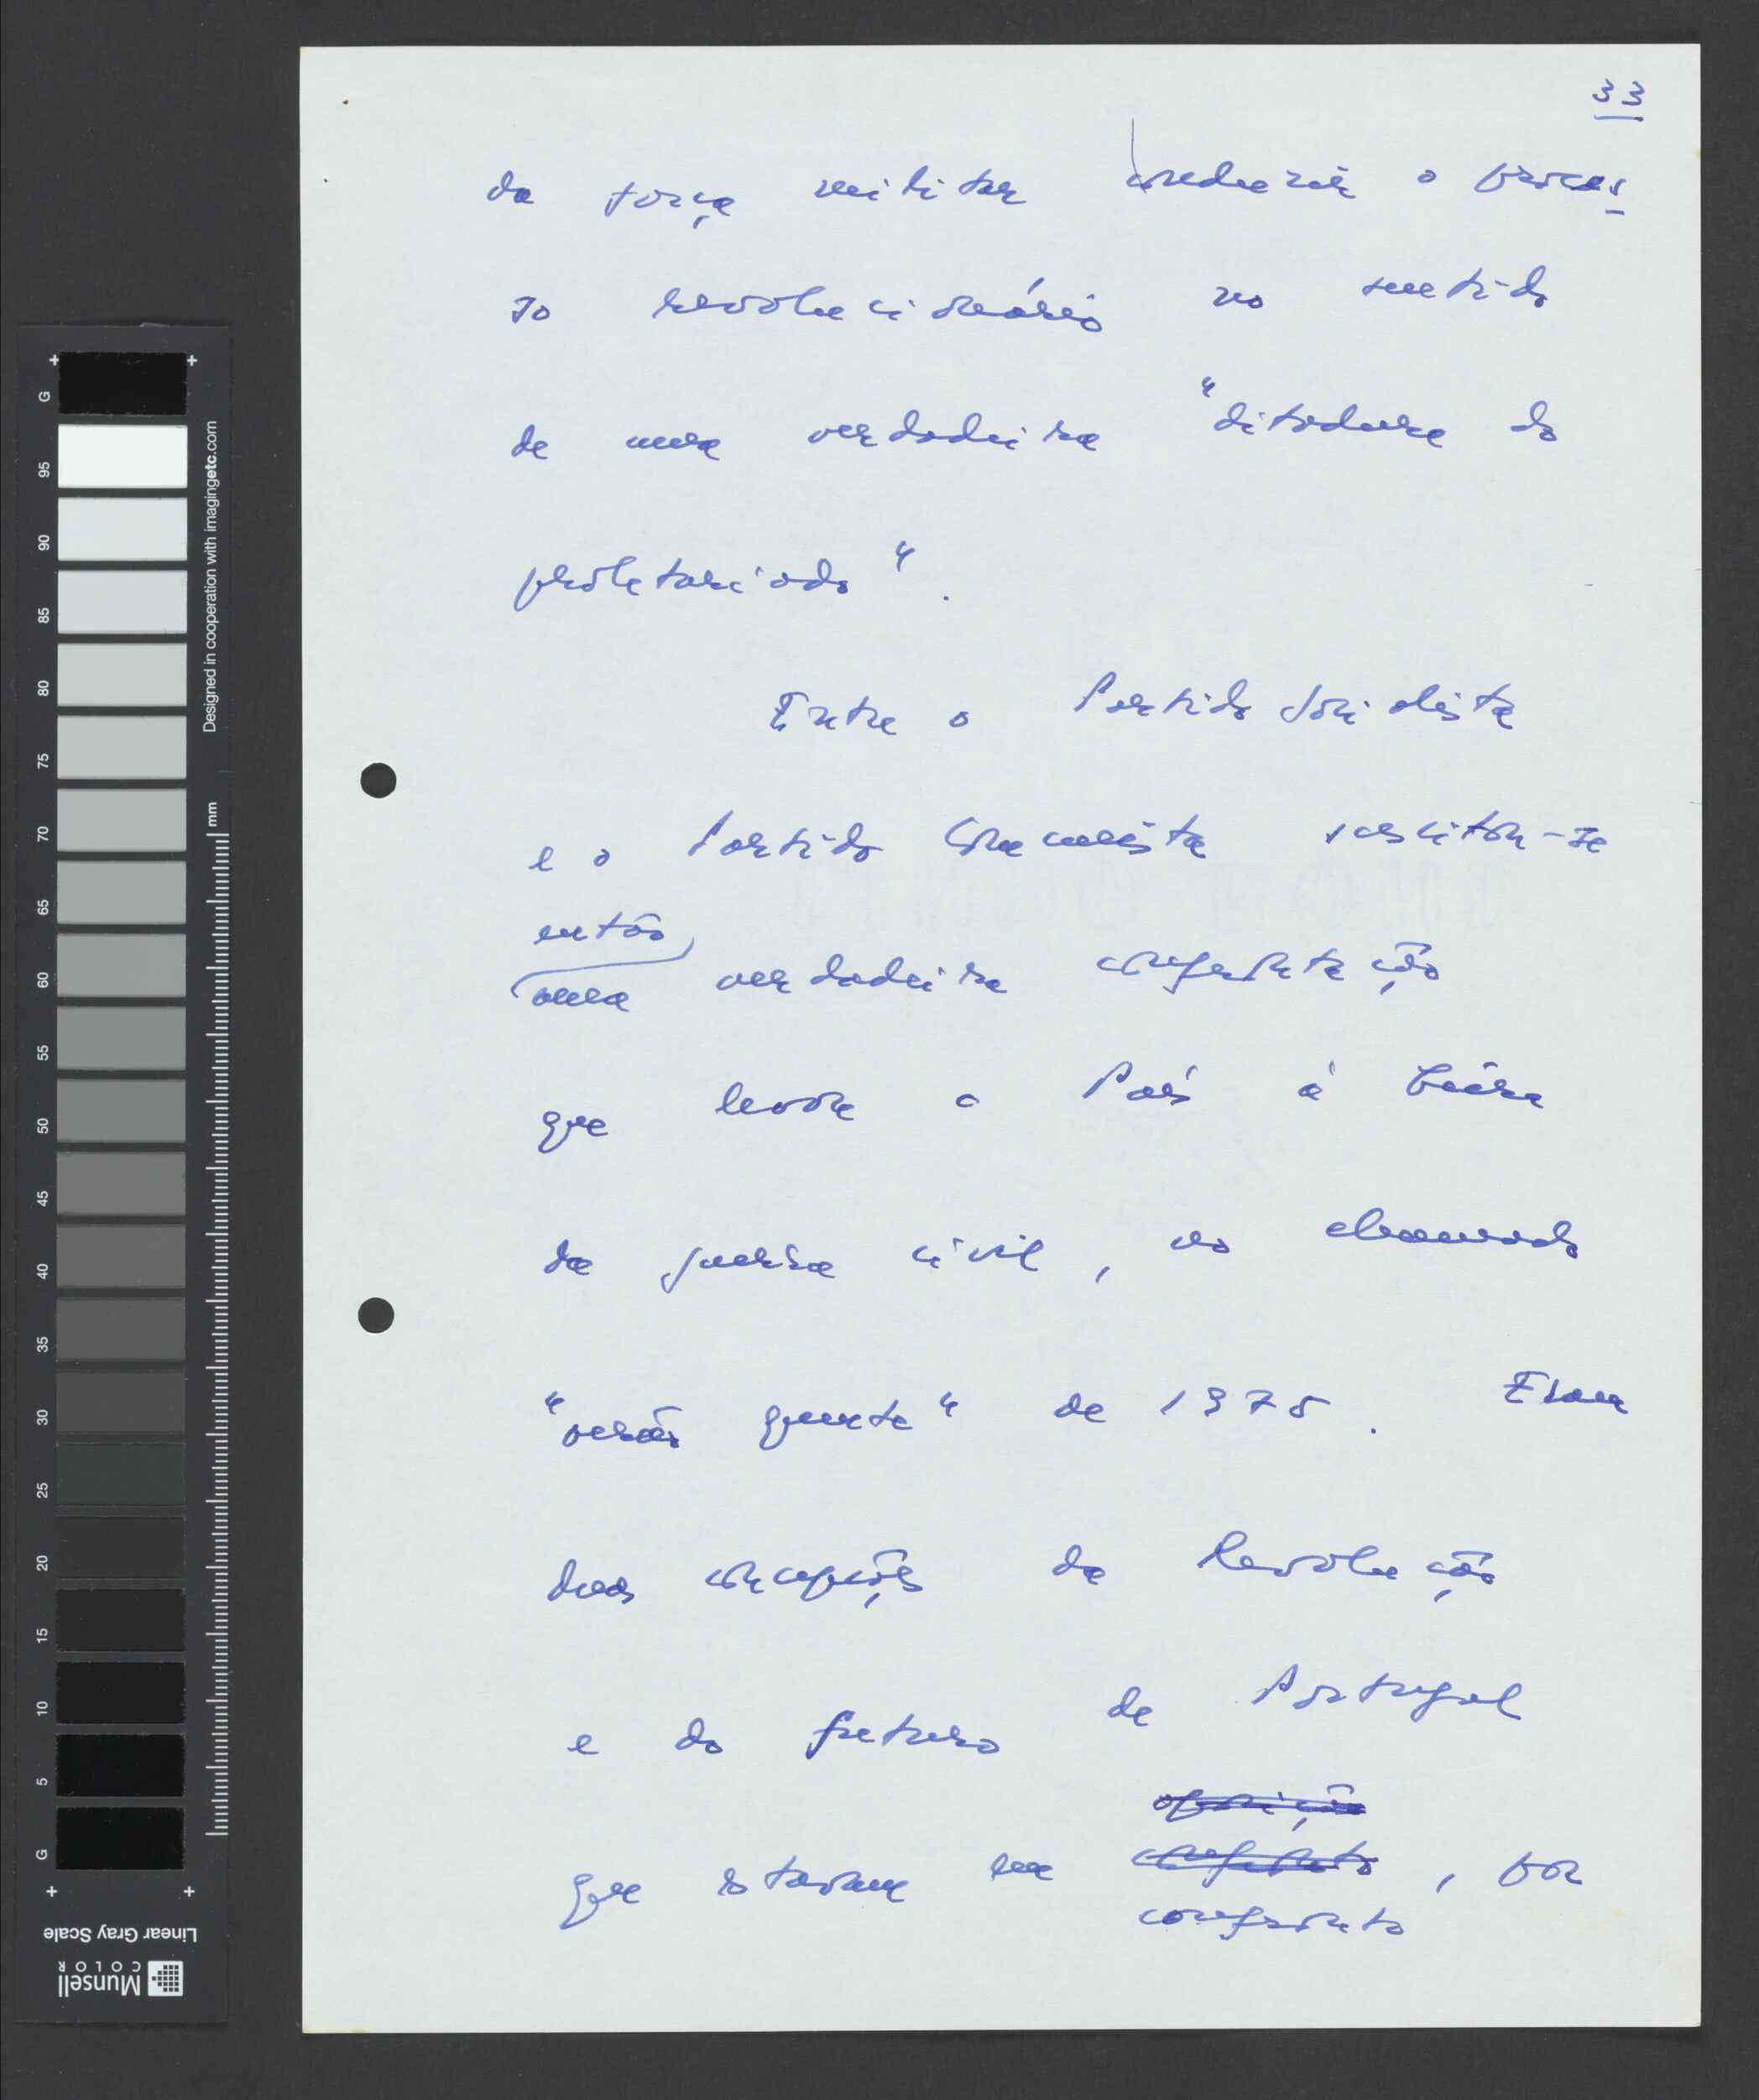 33
da força militar conduzir o proces
so revolucionário no sentido
de uma verdadeira "ditadura do
proletariado".
Entre o Partido Socialista
e o Partido Comunista suscitou-se
então
uma verdadeira confrontação
que levou o País à beira
da guerra civil, no chamado
"verão quente" de 1975. Eram
duas concepções da Revolução
e do futuro de Portugal
oposição
que estavam em confronto, por
confronto
G 95 90 85 80 75 70 65 60 55 50 45 40 35 30 25 20 15 10 5 G
Designed in cooperation with imagingetc.com
mm
Linear Gray Scale
Munsell
COLOR